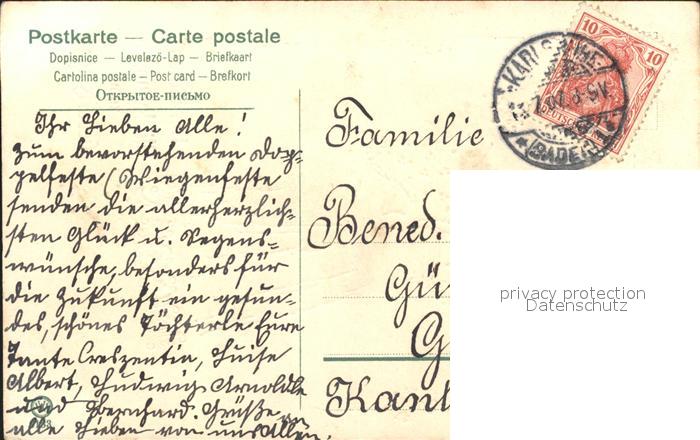 Postkarte — Carte postale
Dopisnice — Levelező-Lap — Briefkaart
Cartolina postale — Post card — Brefkort
Открытое-письмо
Ihr Lieben Alle!
Zum bevorstehenden Dop-
pelfeste (Wiegenfeste
senden die allerherzlich-
sten Glück u. Segens-
wünsche, besonders für
die Zukunft ein gesun-
des, schönes Töchterle Eure
Tante Creszentia, Luise
Albert, Ludwig Arnoldle
und Bernhard. Grüße an
alle Lieben von uns Allen.
Familie
Bened.
Gü
G
Kant
10 10
KARLSRUHE
7.07. 8-9V.
* (BADEN) *
privacy protection
Datenschutz